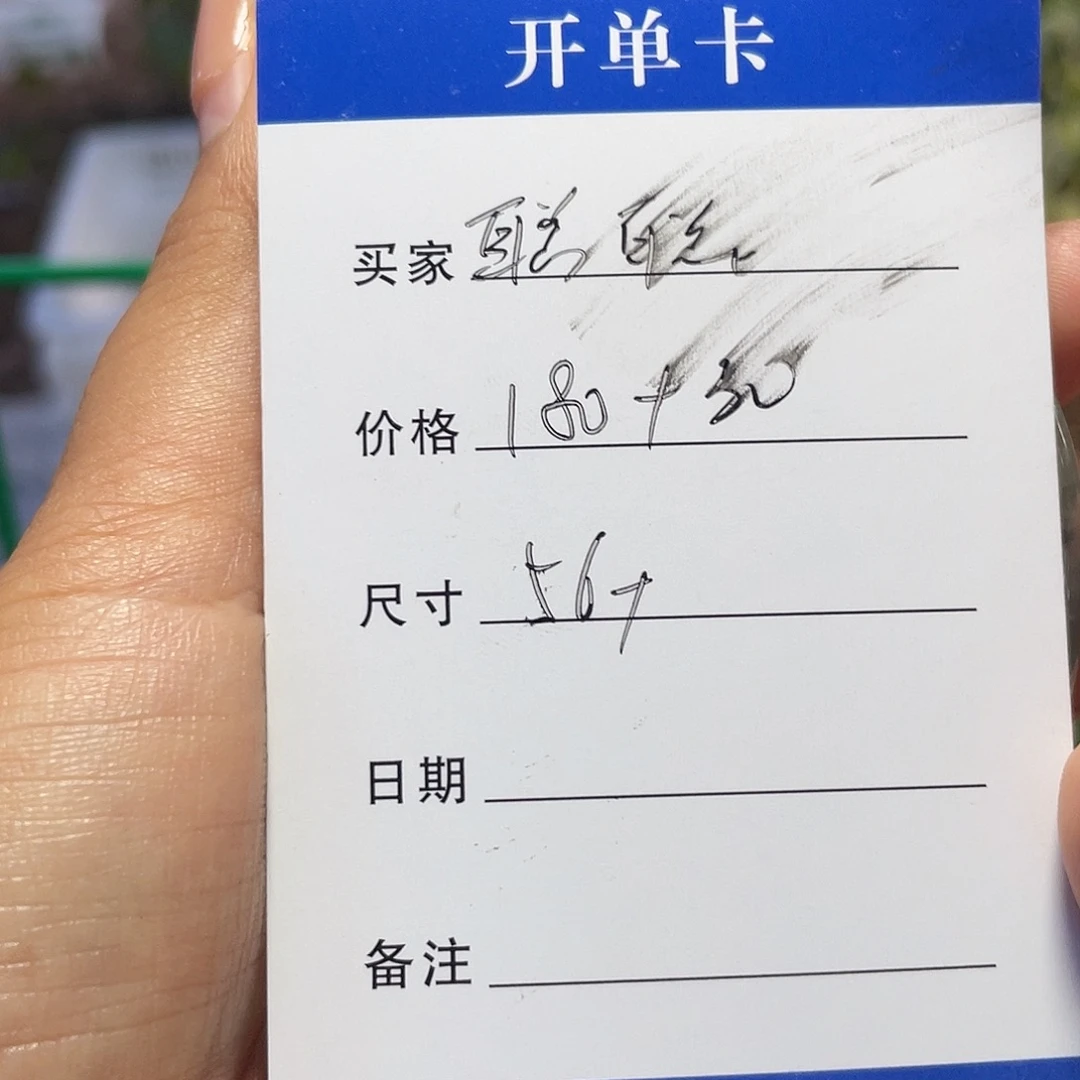 开单卡
买家 聪聪
价格 180+30
尺寸 56+
日期
备注